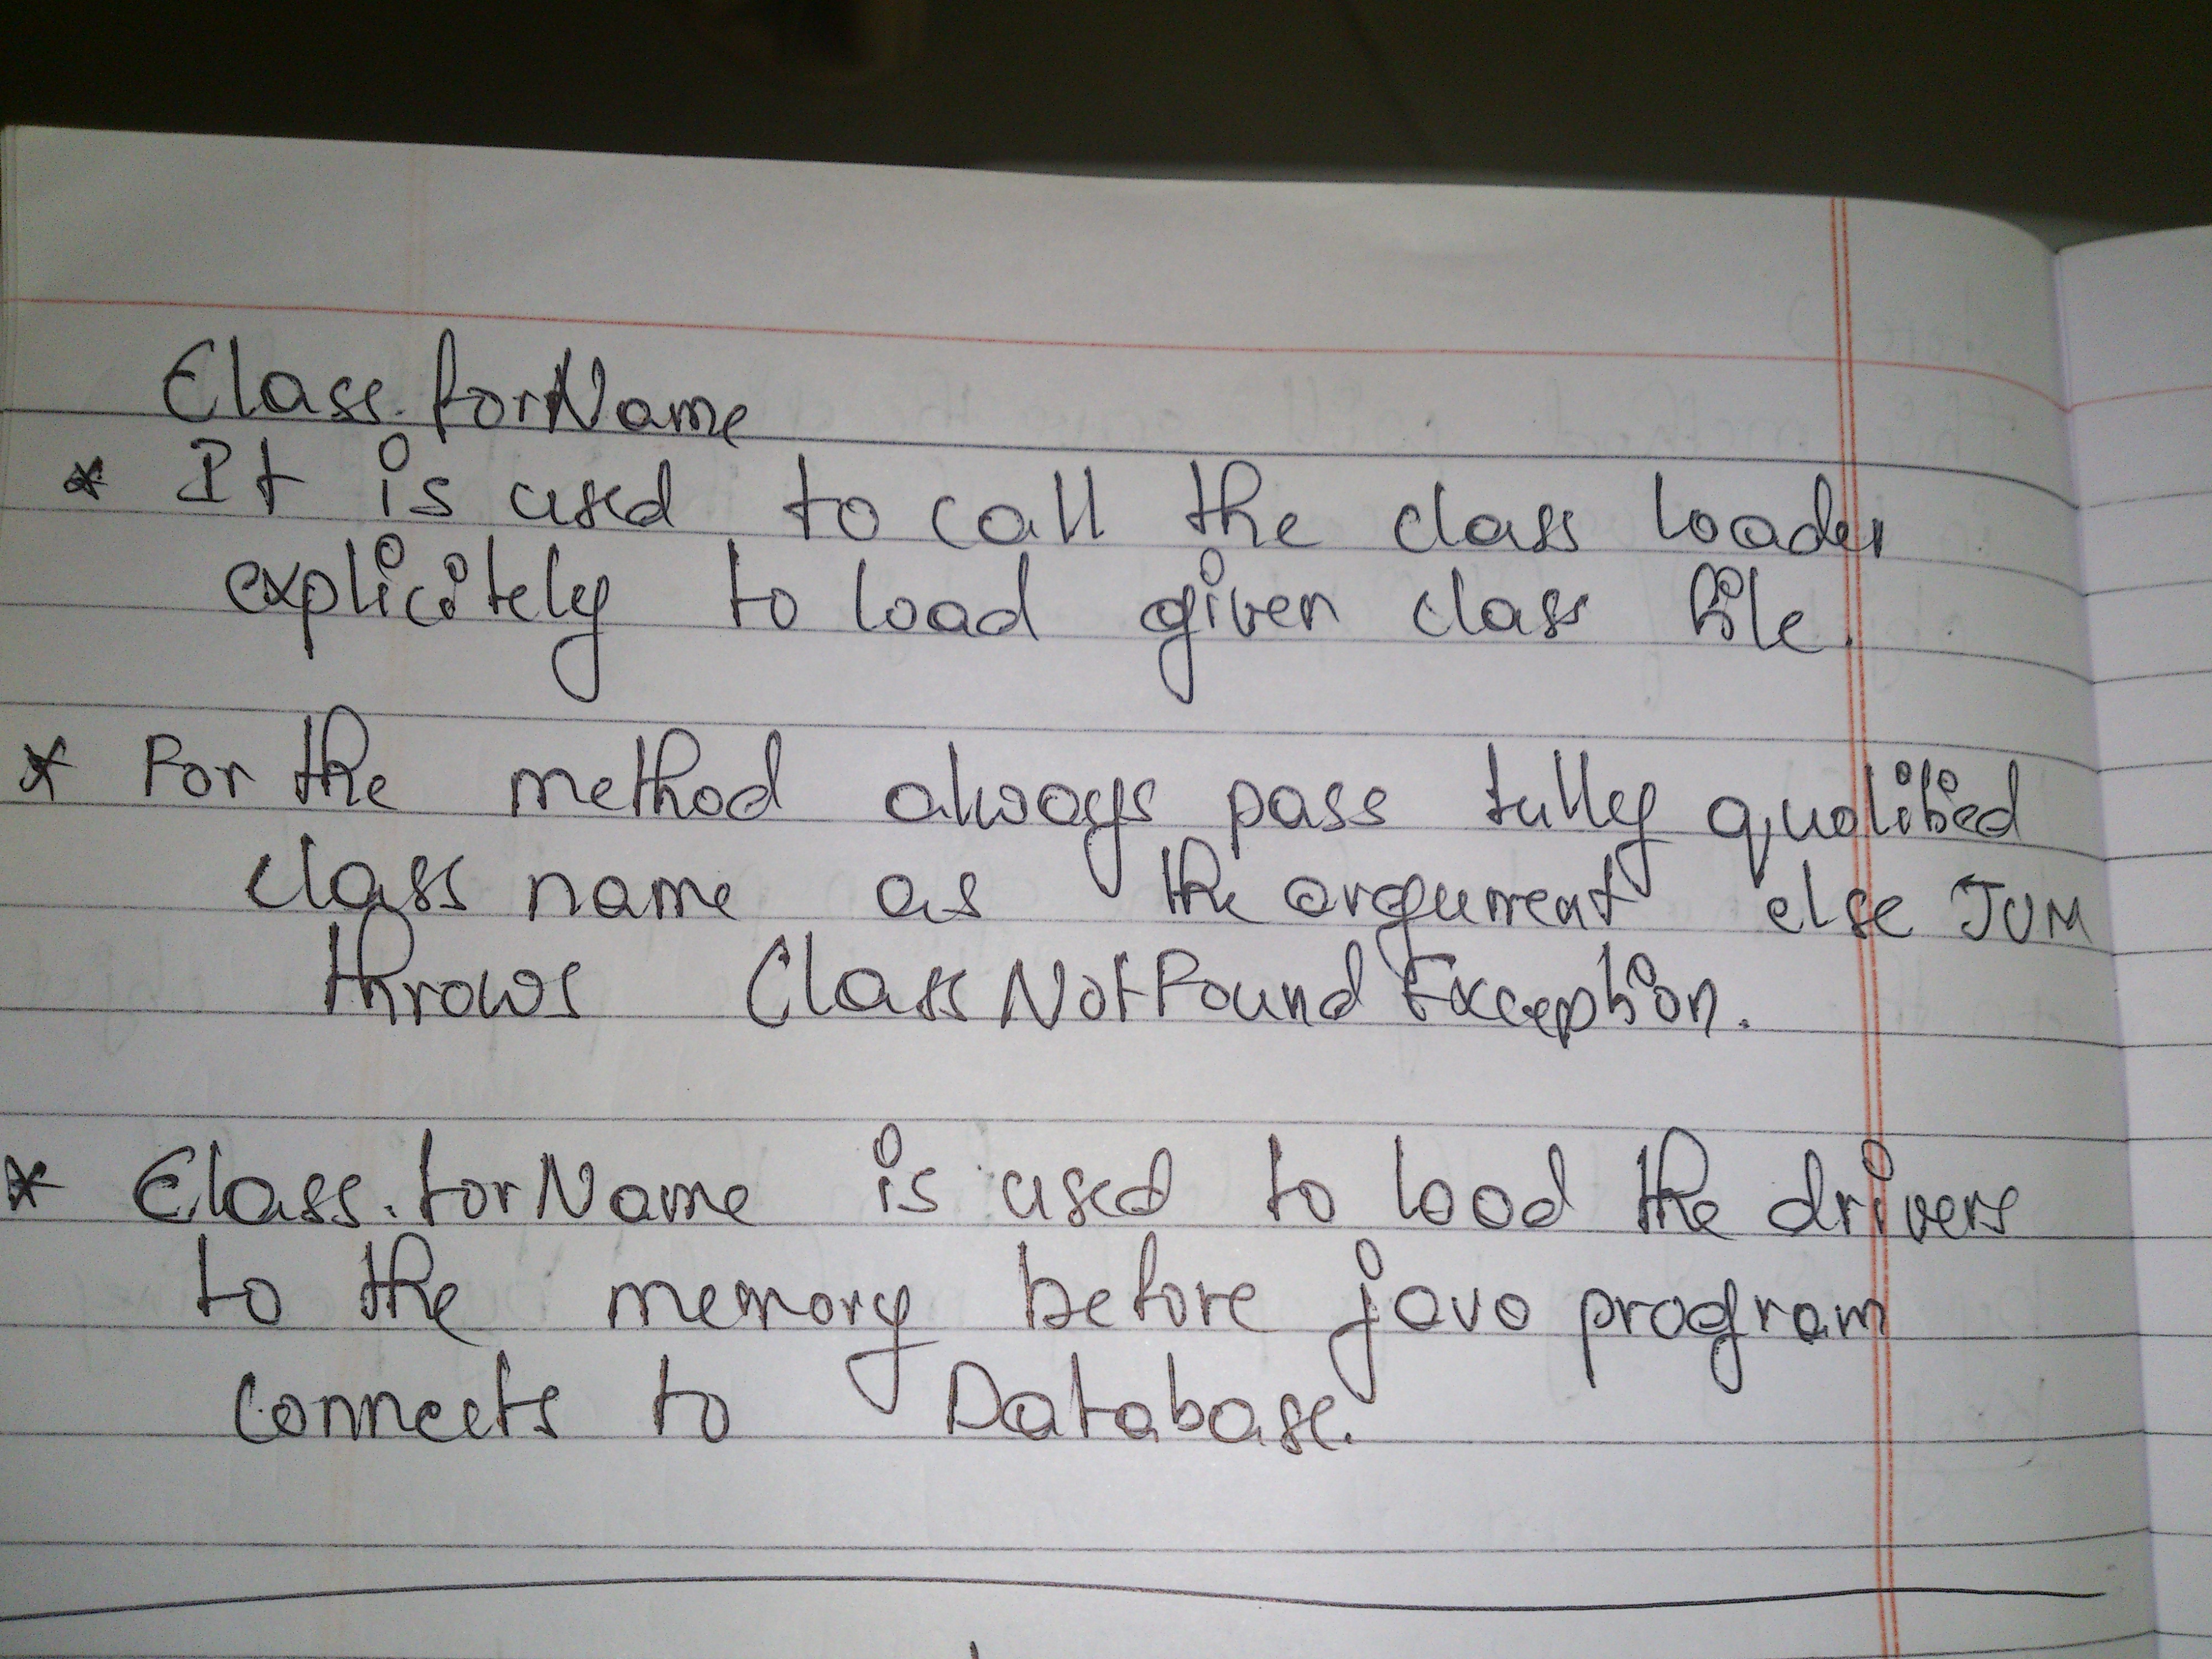 Class.forName
* It is used to call the class loader
explicitely to load given class file.
* For the method always pass fully qualified
class name as the argument else JVM
throws ClassNotFoundException.
* Class.forName is used to load the drivers
to the memory before java program
connects to Database.